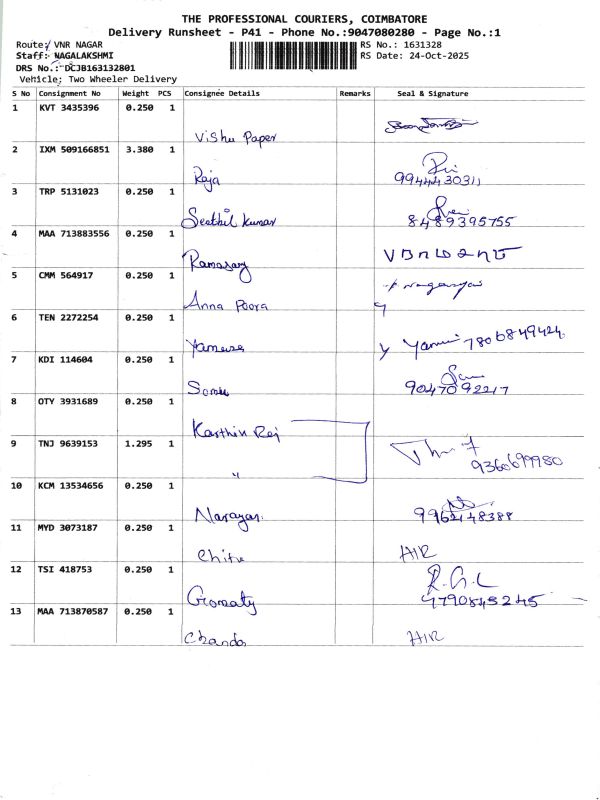 THE PROFESSIONAL COURIERS, COIMBATORE
Delivery Runsheet - P41 - Phone No.:9047080280 - Page No.:1
Route: VNR NAGAR RS No.: 1631328
Staff: NAGALAKSHMI RS Date: 24-Oct-2025
DRS No.: DCJB163132801
Vehicle: Two Wheeler Delivery
S No Consignment No Weight PCS Consignee Details Remarks Seal & Signature
1 KVT 3435396 0.250 1
Vishu Paper
2 IXM 509166851 3.380 1
Raja 9944430311
3 TRP 5131023 0.250 1
Senthil kumar 8489395755
4 MAA 713883556 0.250 1
Ramasamy
5 CMM 564917 0.250 1
Anna Poora
6 TEN 2272254 0.250 1
7806849424
7 KDI 114604 0.250 1
9047092217
8 OTY 3931689 0.250 1
Karthik Raj
9 TNJ 9639153 1.295 1
" 9360699980
10 KCM 13534656 0.250 1
Narayan 9962148388
11 MYD 3073187 0.250 1
Chitra AIR
12 TSI 418753 0.250 1
R.G.L
Gomaty 9790845245
13 MAA 713870587 0.250 1
Chandra AIR